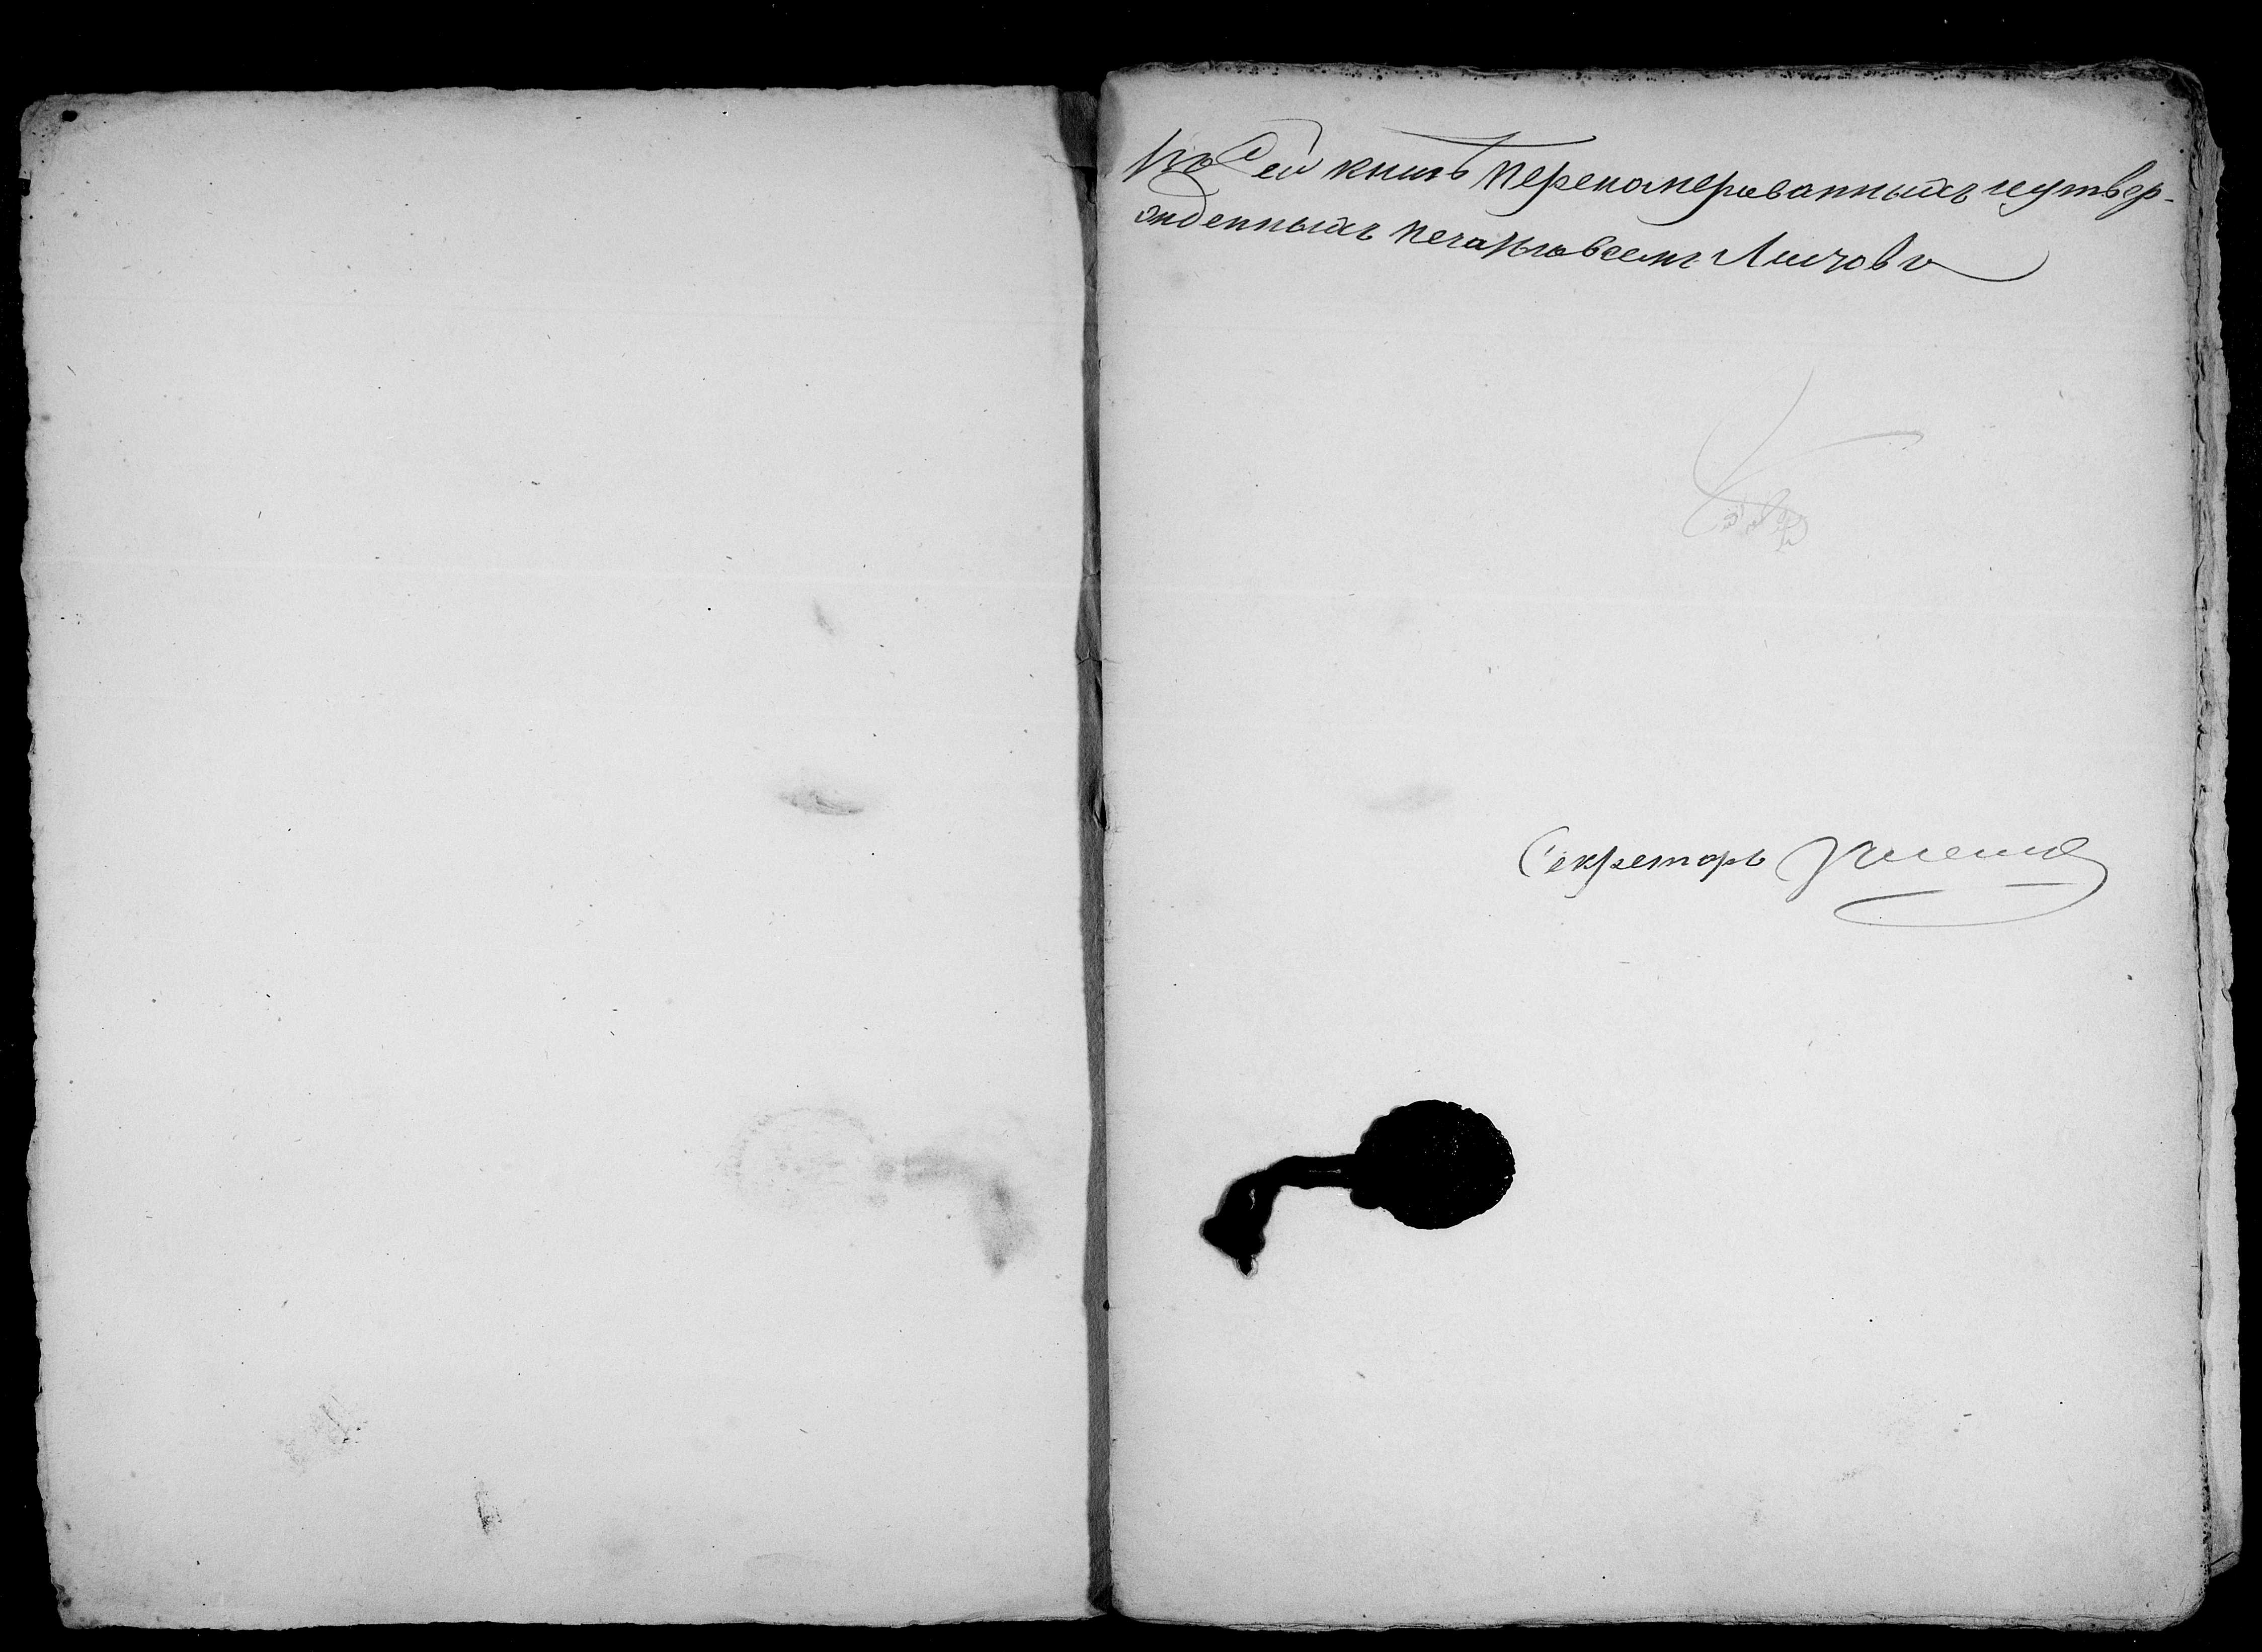 Въ Сей книгѣ перенамерованныхъ иутвер-
жденныхъ печатью всемь Листовъ
Секретарь